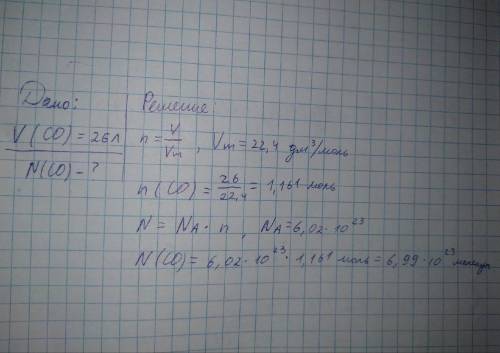 Дано:
V(CO) = 26л
N(CO) - ?
Решение:
n = V/Vm , Vm = 22,4 дм³/моль
n(CO) = 26/22,4 = 1,161 моль
N = NA · n , NA = 6,02 · 10²³
N(CO) = 6,02 · 10²³ · 1,161 моль = 6,99 · 10²³ молекул